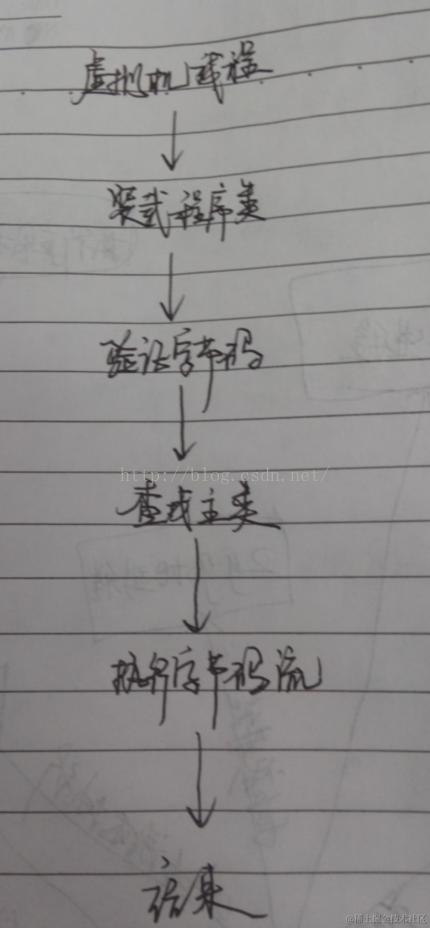 虚拟机线程
装载程序类
验证字节码
http://blog.csdn.net/
查找主类
执行字节码流
结束
@稀土掘金技术社区